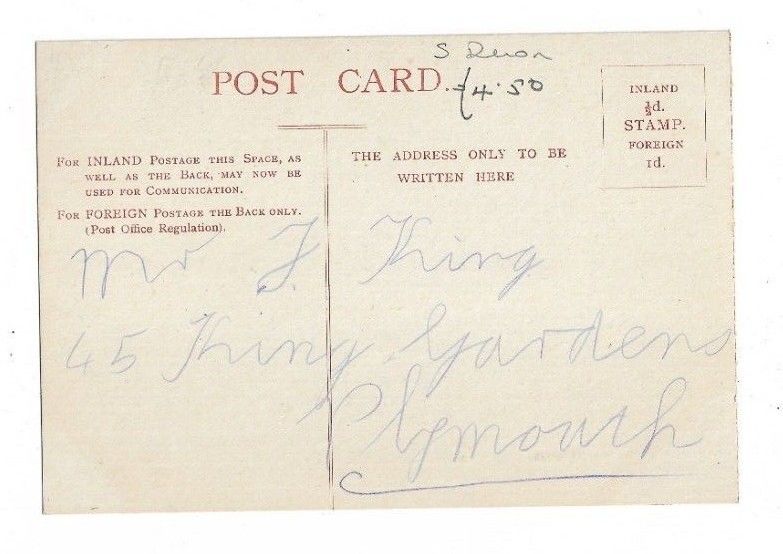 S Devon
POST CARD.
£4.50
INLAND
½d.
STAMP.
FOREIGN
1d.
FOR INLAND POSTAGE THIS SPACE, AS
WELL AS THE BACK, MAY NOW BE
USED FOR COMMUNICATION.
FOR FOREIGN POSTAGE THE BACK ONLY.
(Post Office Regulation).
THE ADDRESS ONLY TO BE
WRITTEN HERE
Mr F King
45 King Gardens
Plymouth